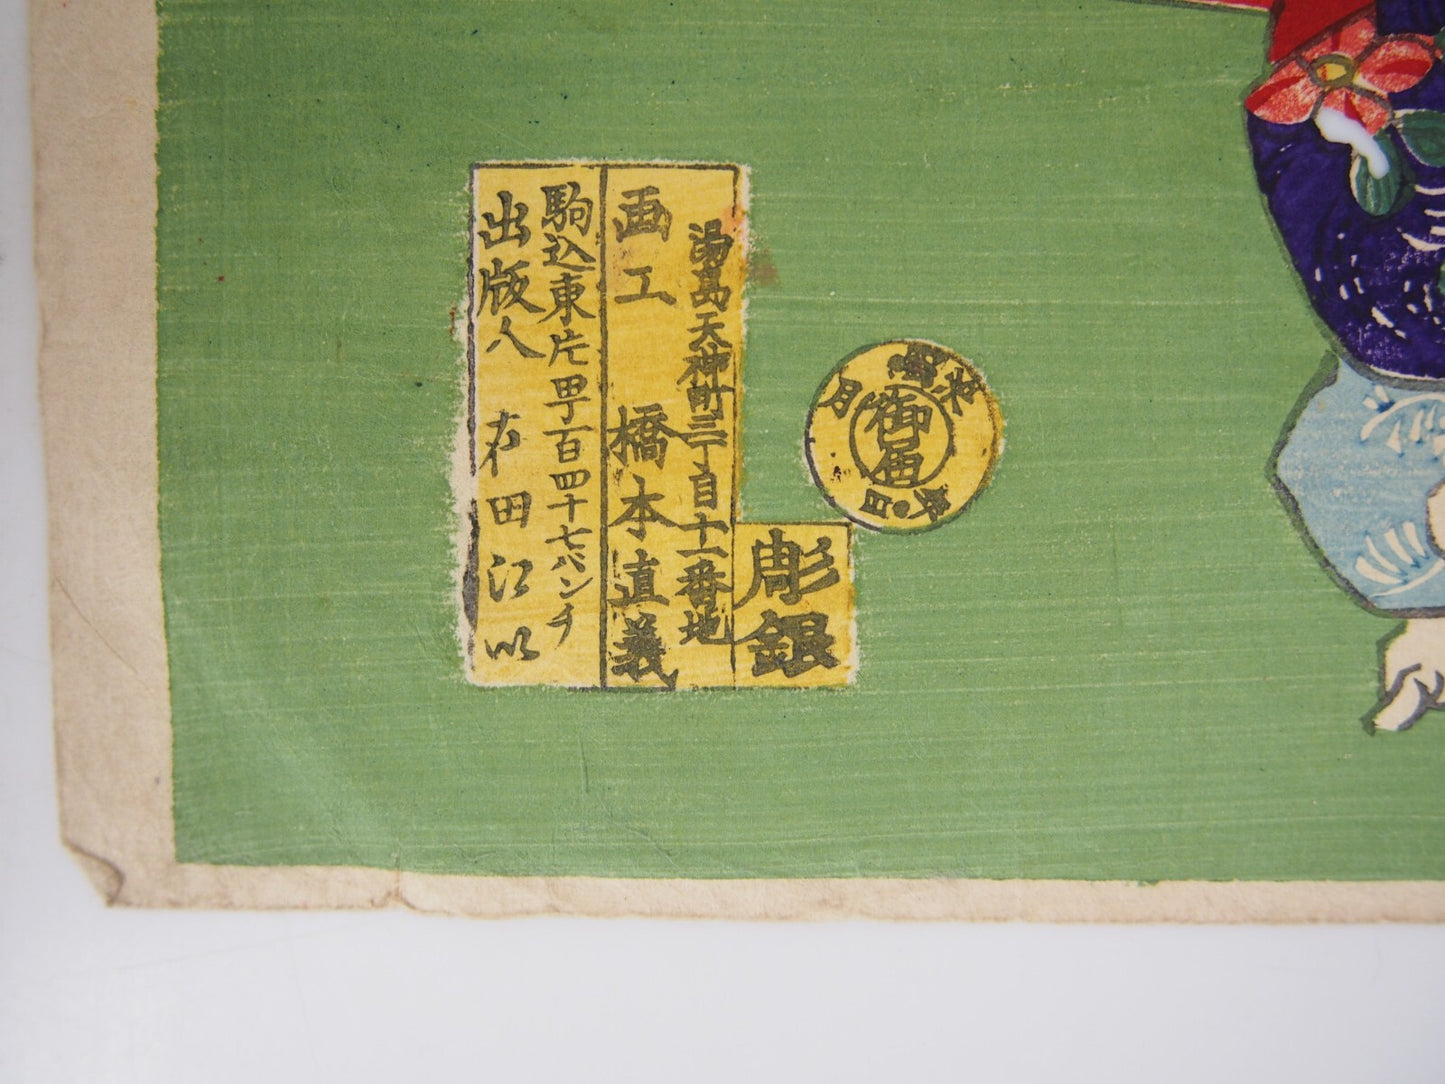 湯島天神町三丁目十一番地
画工 橋本直義
駒込東片町百四十七バンチ
出版人 田江
彫銀
御届
月 日